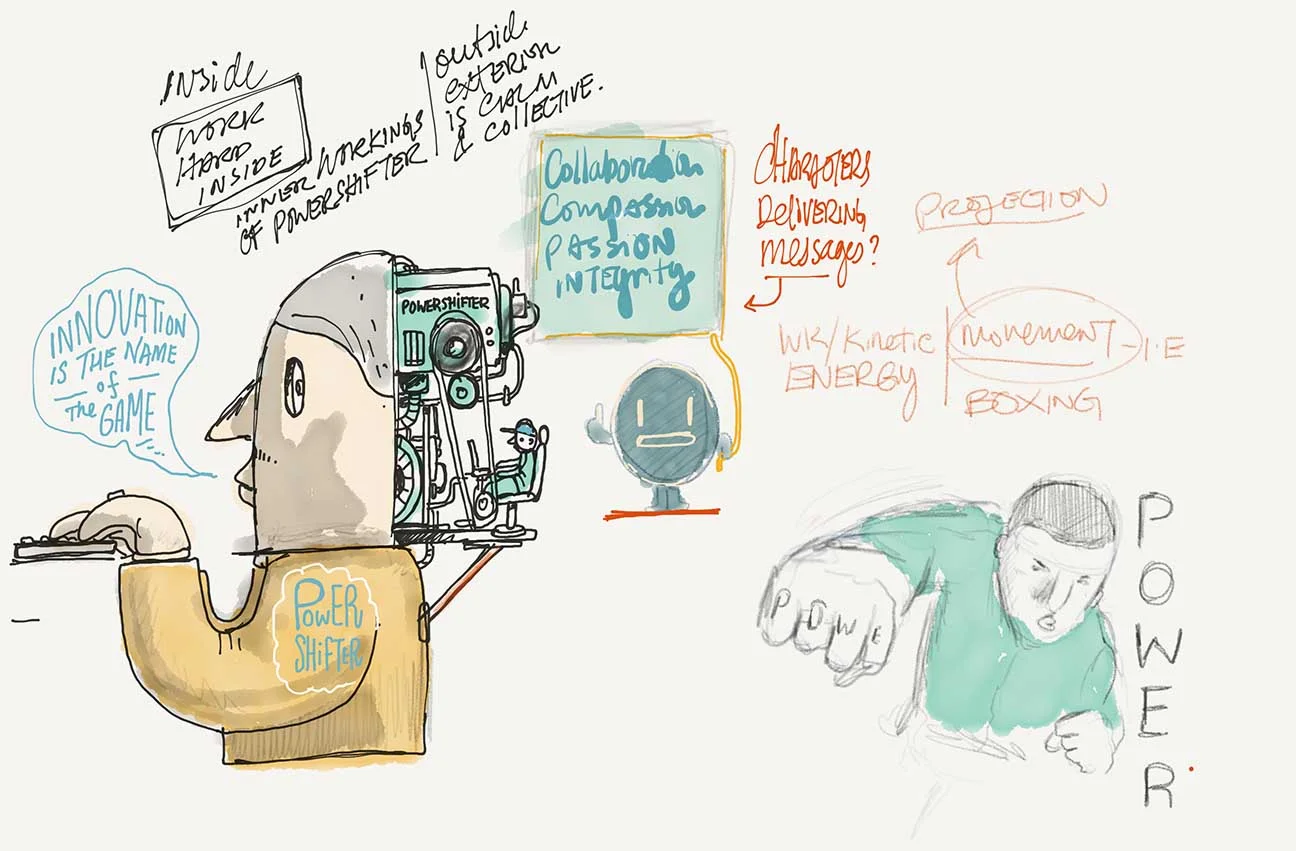 inside
WORK
HARD
INSIDE
INNER WORKINGS
OF POWERSHIFTER
outside
EXTERIOR
is CALM
& COLLECTIVE.
Collaboration
Compassion
PASSION
INTEgrity
CHARACTERS
DELIVERING
messages?
PROJECTION
WK/Kinetic
ENERGY
movement - I.E
BOXING
INNOVATION
IS THE NAME
of
The GAME
POWERSHIFTER
POWER
SHIFTER
POWE
P
O
W
E
R